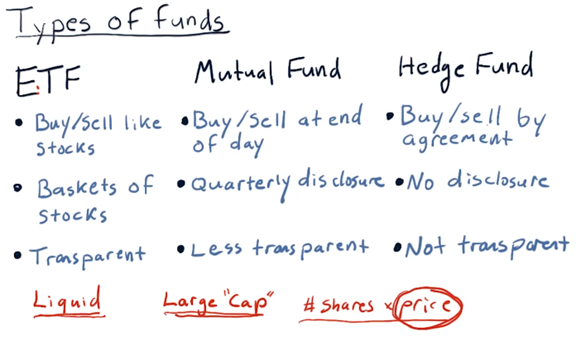 Types of funds
ETF
• Buy/Sell like
stocks
• Baskets of
stocks
• Transparent
Mutual Fund
• Buy/Sell at end
of day
• Quarterly disclosure
• Less transparent
Hedge Fund
• Buy/sell by
agreement
• No disclosure
• Not transparent
Liquid
Large "Cap"
# shares × price